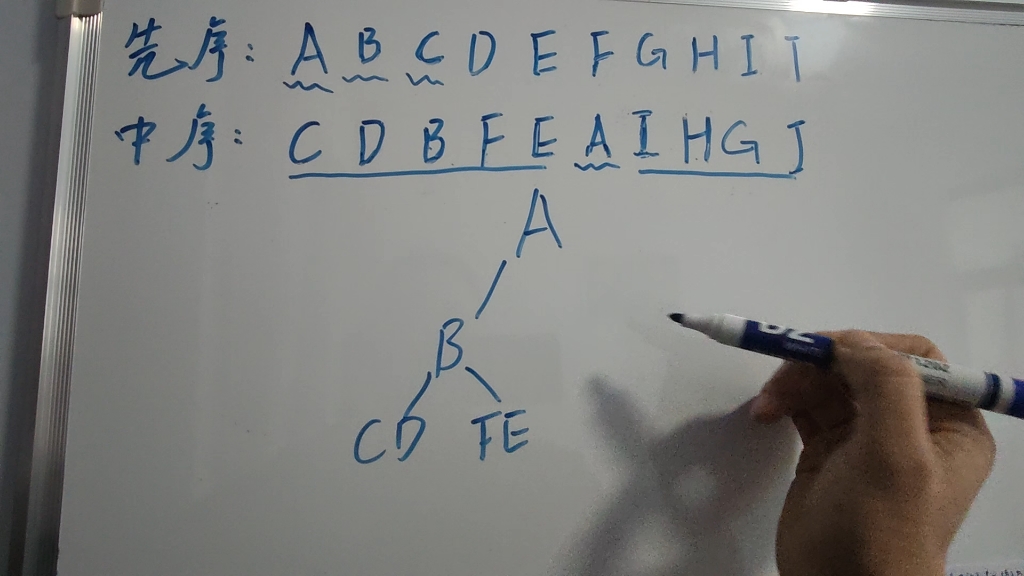 先序: A B C D E F G H I J
中序: C D B F E A I H G J
A
B
CD FE